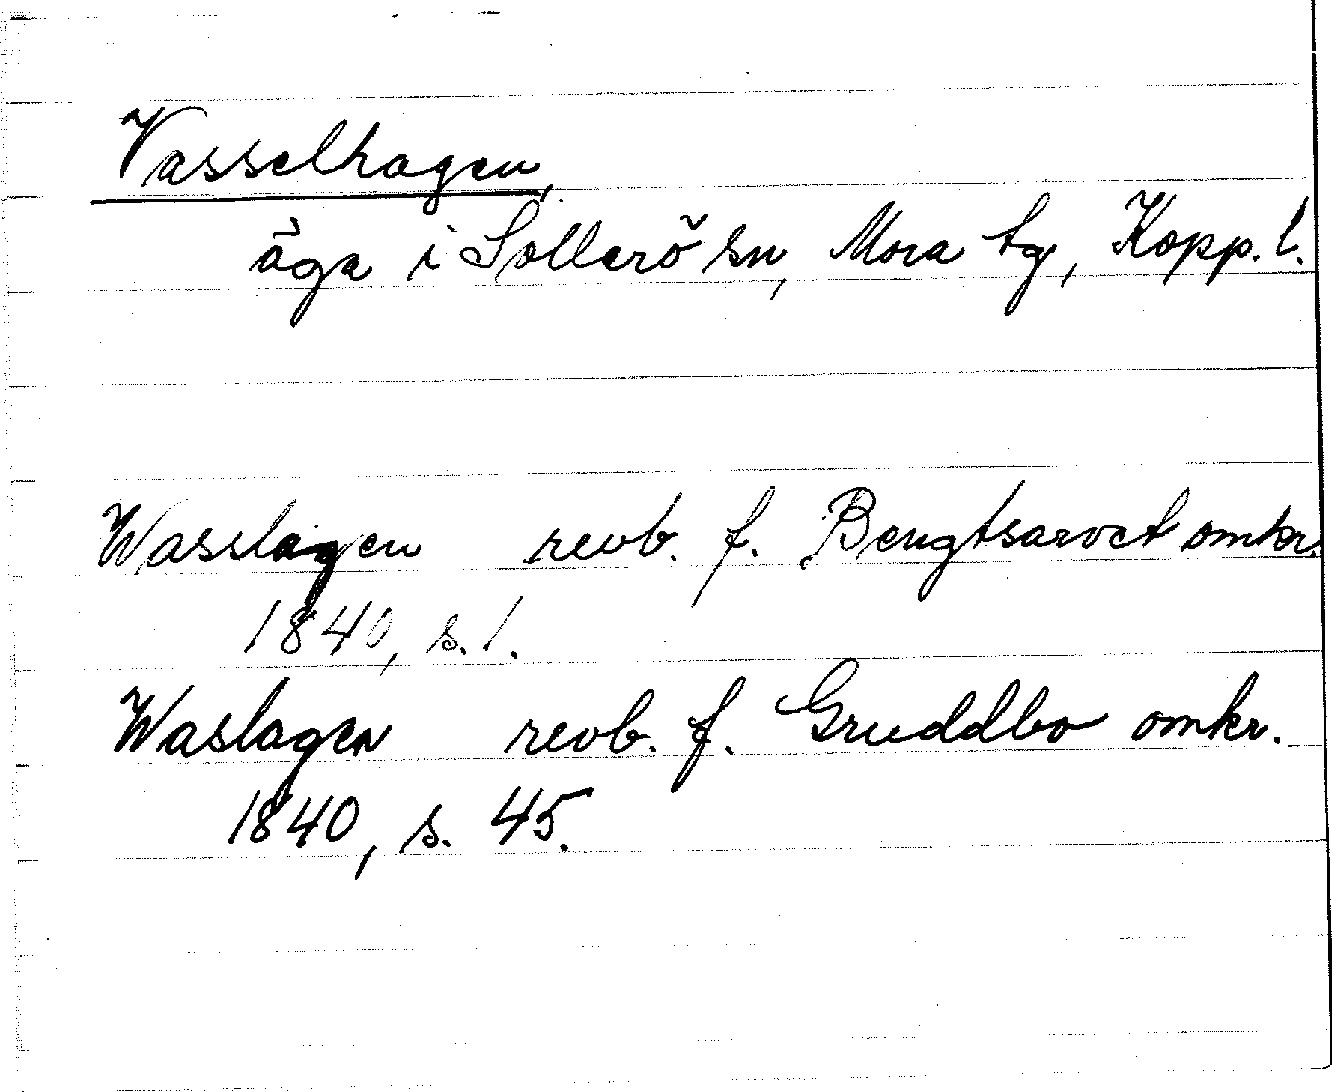 Vasselhagen,
äga i Sollerö sn, Mora tg, Kopp. l.
Wasslagen revb. f. Bengtsarvet omkr.
1840, s. 1.
Waslagen revb. f. Gruddbo omkr.
1840, s. 45.